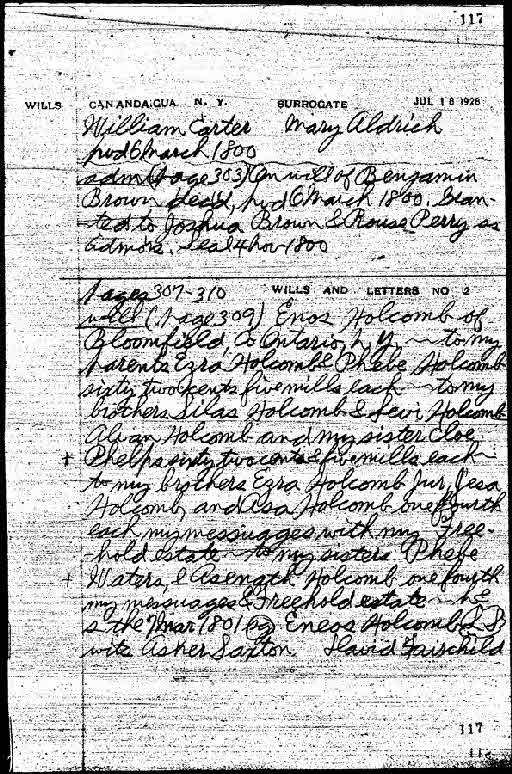 117
WILLS CANANDAIGUA N. Y. SURROGATE JUL 18 1928
William Carter Mary Aldrich
pvd 6 March 1800
adm (Page 303) On will of Benjamin
Brown decd, pvd 6 March 1800. Gran-
ted to Joshua Brown & Rouse Perry as
admors. Seal 4 Nov 1800
Pages 307-310 WILLS AND LETTERS NO 2
will (Page 309) Enos Holcomb of
Bloomfield, Co Ontario, N.Y. — to my
parents Ezra Holcomb & Phebe Holcomb
sixty two cents five mills each — to my
brothers Silas Holcomb & Levi Holcomb
Alvan Holcomb and my sister Cloe
+ Phelps sixty two cents & five mills each —
to my brothers Ezra Holcomb Jur, Jesa
Holcomb, and Asa Holcomb one fourth
each my messuages with my Free-
hold estate — to my sisters Phebe
+ Waters, & Asengath Holcomb one fourth
my messuages & Freehold estate —
s the Mar 1801 Eneos Holcomb
wits Asher Saxton David Fairchild
117